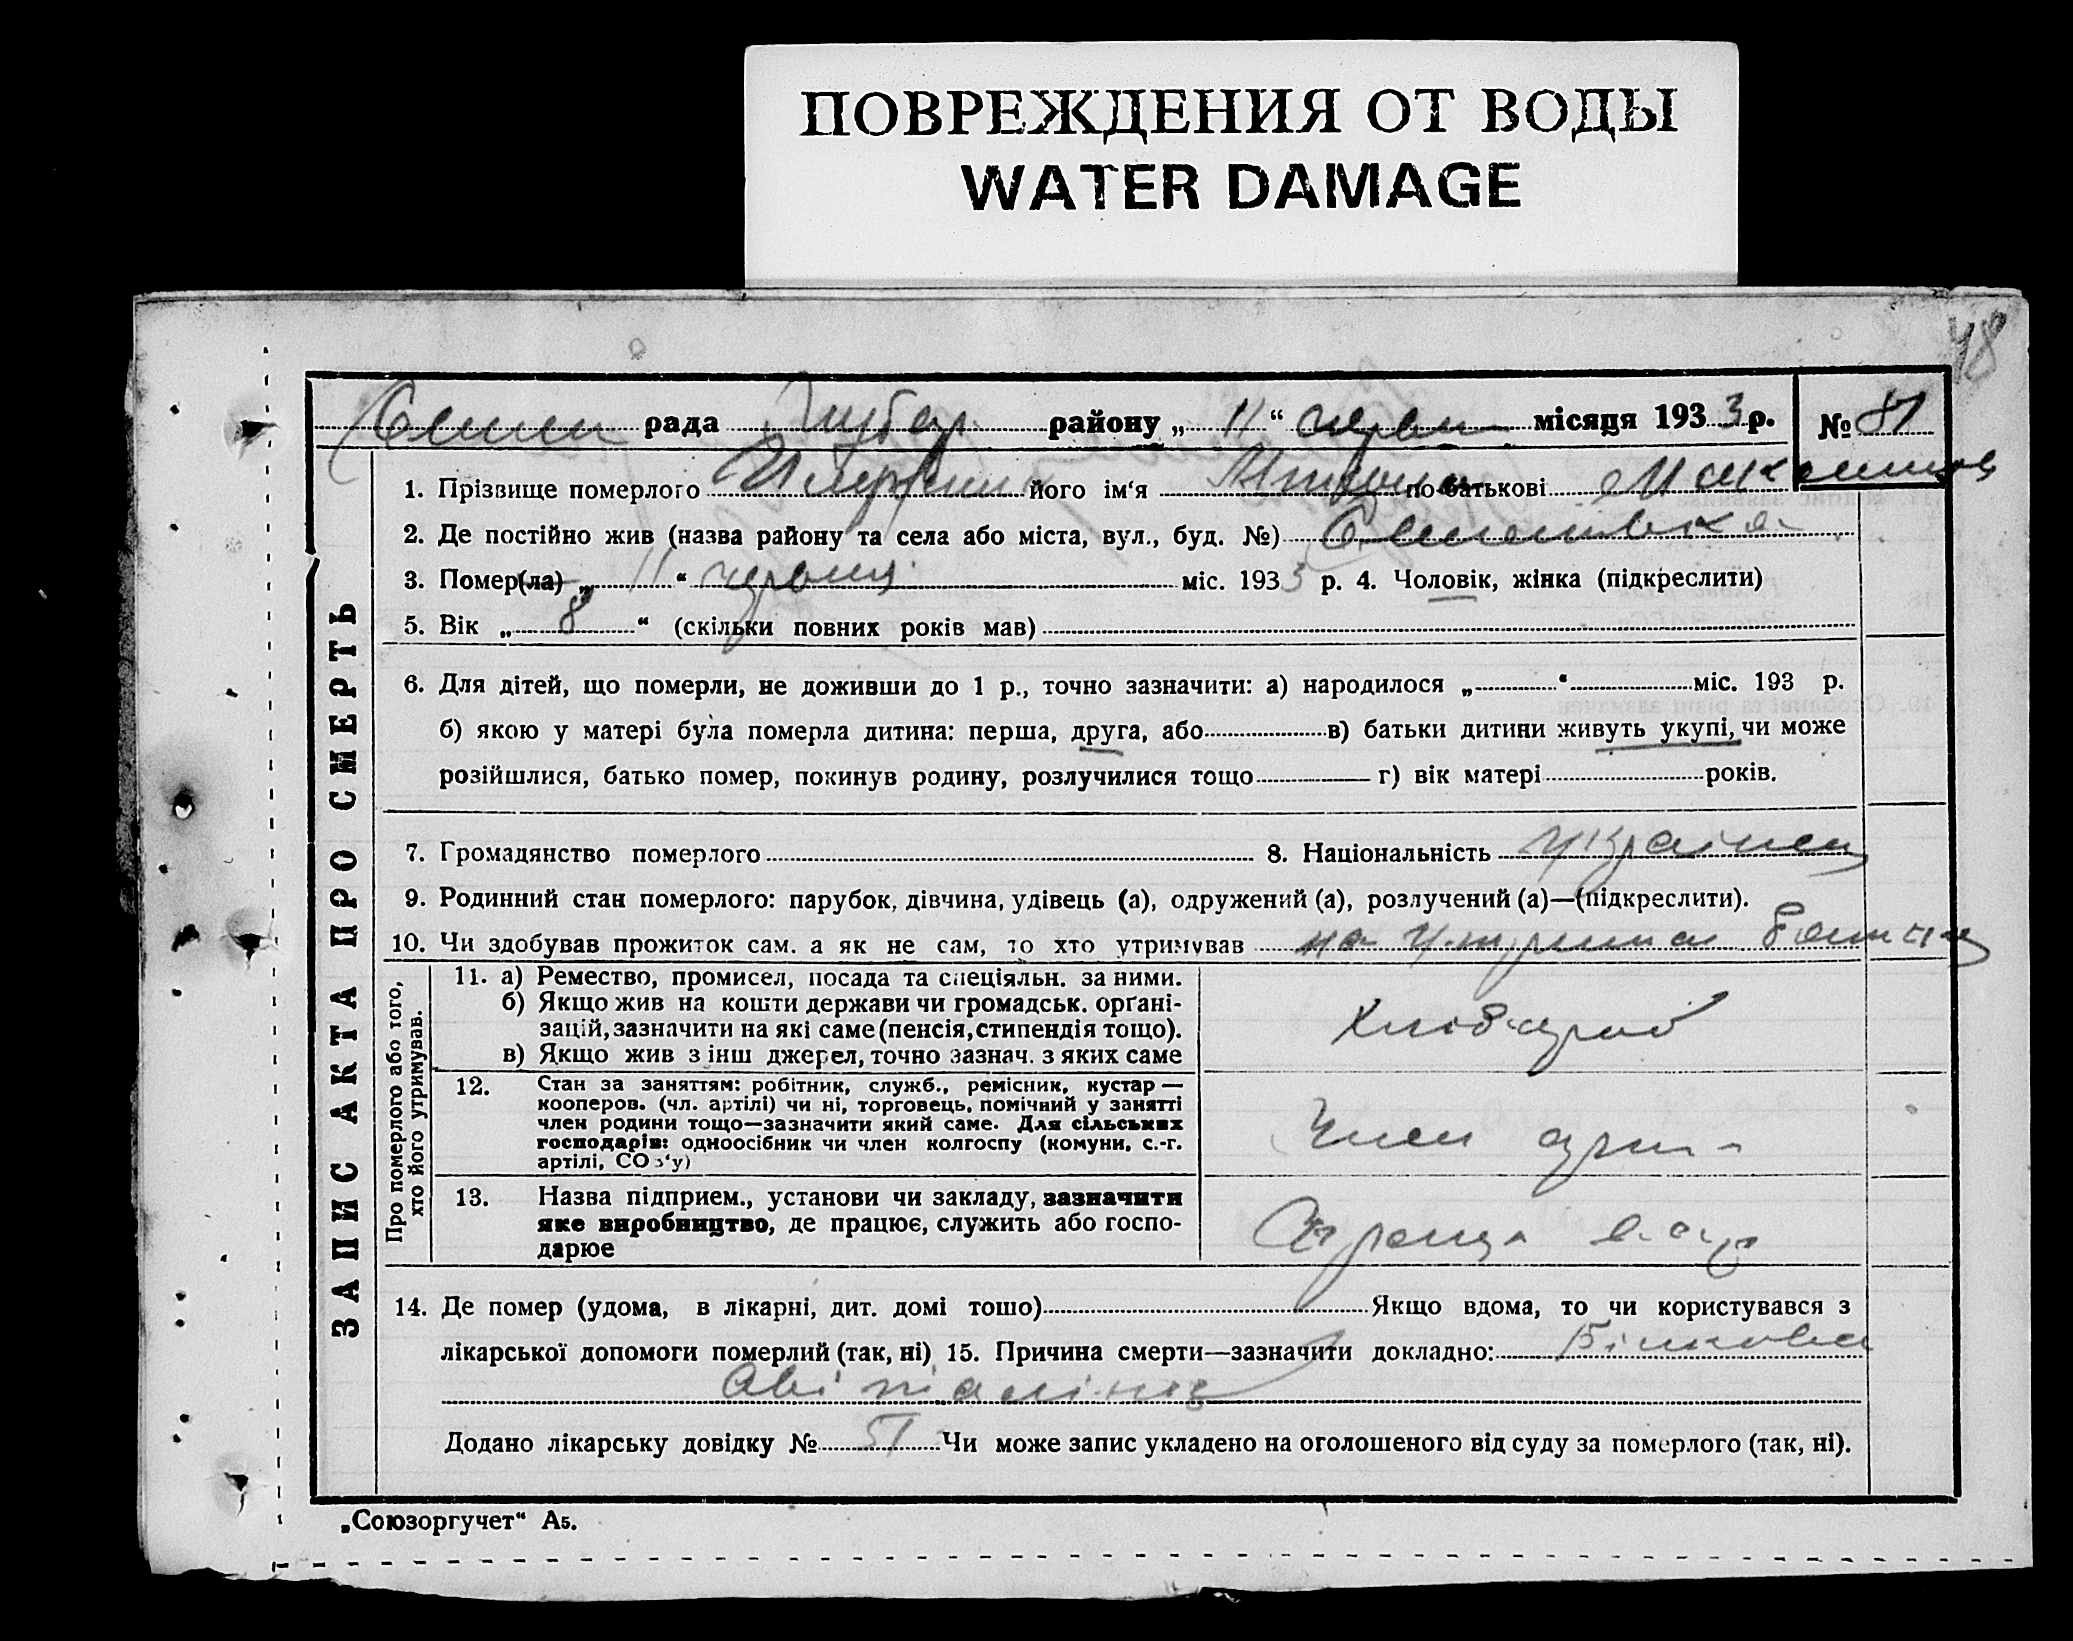 ПОВРЕЖДЕНИЯ ОТ ВОДЫ
WATER DAMAGE
48
рада район у „ 11 “ черв місяця 193 3 р.
№ 81
ЗАПИС АКТА ПРО СМЕРТЬ
1. Прізвище померлого його ім‘я по батькові
2. Де постійно жив (назва району та села або міста, вул., буд. №) Семенівка
3. Помер(ла) „ 11 “ червня міс. 193 3 р. 4. Чоловік, жінка (підкреслити)
5. Вік „ 8 “ (скільки повних років мав)
6. Для дітей, що померли, не доживши до 1 р., точно зазначити: а) народилося „ “ міс. 193 р.
б) якою у матері була померла дитина: перша, друга, або в) батьки дитини живуть укупі, чи може
розійшлися, батько помер, покинув родину, розлучилися тощо г) вік матері років.
7. Громадянство померлого 8. Національність українец
9. Родинний стан померлого: парубок, дівчина, удівець (а), одружений (а), розлучений (а)—(підкреслити).
10. Чи здобував прожиток сам. а як не сам, то хто утримував на утриман батька
Про померлого або того,
хто його утримував.
11. а) Ремество, промисел, посада та спеціяльн. за ними.
б) Якщо жив на кошти держави чи громадськ. орґані-
зацій, зазначити на які саме (пенсія, стипендія тощо).
в) Якщо жив з інш джерел, точно зазнач. з яких саме
Хлібороб
12. Стан за заняттям: робітник, служб., ремісник, кустар —
кооперов. (чл. артілі) чи ні, торговець, помічний у занятті
член родини тощо—зазначити який саме. Для сільських
господарів: одноосібник чи член колгоспу (комуни, с.-г.
артілі, СОЗ‘у)
Член
13. Назва підприєм., установи чи закладу, зазначити
яке виробництво, де працює, служить або госпо-
дарює
14. Де помер (удома, в лікарні, дит. домі тошо) Якщо вдома, то чи користувався з
лікарської допомоги померлий (так, ні) 15. Причина смерти—зазначити докладно: Білкова
Авітаміноз
Додано лікарську довідку № 51 Чи може запис укладено на оголошеного від суду за померлого (так, ні).
„Союзоргучет“ А5.